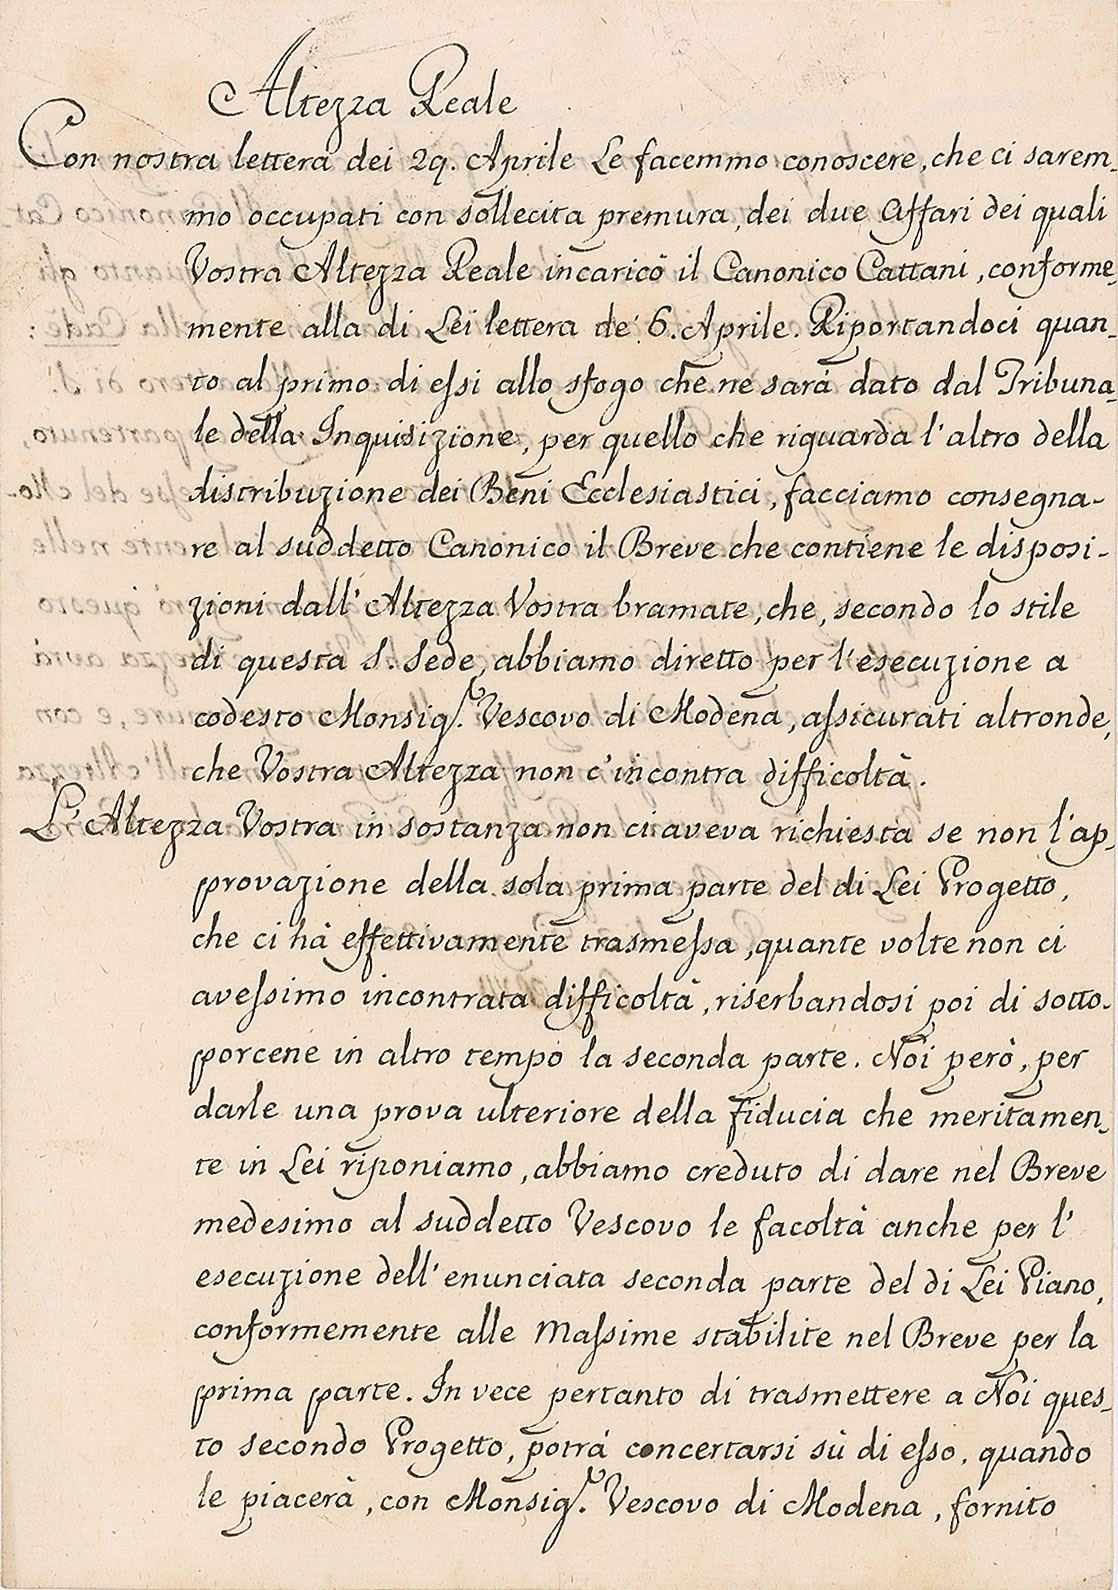 Altezza Reale
Con nostra lettera dei 29. Aprile Le facemmo conoscere, che ci sarem-
mo occupati con sollecita premura, dei due Affari dei quali
Vostra Altezza Reale incaricò il Canonico Cattani, conforme-
mente alla di Lei lettera de' 6. Aprile. Riportandoci quan-
to al primo di eſsi allo sfogo che ne sarà dato dal Tribuna-
le della Inquisizione, per quello che riguarda l'altro della
distribuzione dei Beni Ecclesiastici, facciamo consegna-
re al suddetto Canonico il Breve che contiene le disposi-
zioni dall'Altezza Vostra bramate, che, secondo lo stile
di questa S. Sede, abbiamo diretto per l'esecuzione a
codesto Monsigr. Vescovo di Modena, aſsicurati altronde,
che Vostra Altezza non c'incontra difficoltà.
L'Altezza Vostra in sostanza non ci aveva richiesta se non l'ap-
provazione della sola prima parte del di Lei Progetto,
che ci hà effettivamente trasmeſsa, quante volte non ci
aveſsimo incontrata difficoltà, riserbandosi poi di sotto-
porcene in altro tempo la seconda parte. Noi però, per
darle una prova ulteriore della fiducia che meritamen-
te in Lei riponiamo, abbiamo creduto di dare nel Breve
medesimo al suddetto Vescovo le facoltà anche per l'
esecuzione dell'enunciata seconda parte del di Lei Piano,
conformemente alle Maſsime stabilite nel Breve per la
prima parte. In vece pertanto di trasmettere a Noi ques-
to secondo Progetto, potrà concertarsi sù di eſso, quando
le piacerà, con Monsigr. Vescovo di Modena, fornito